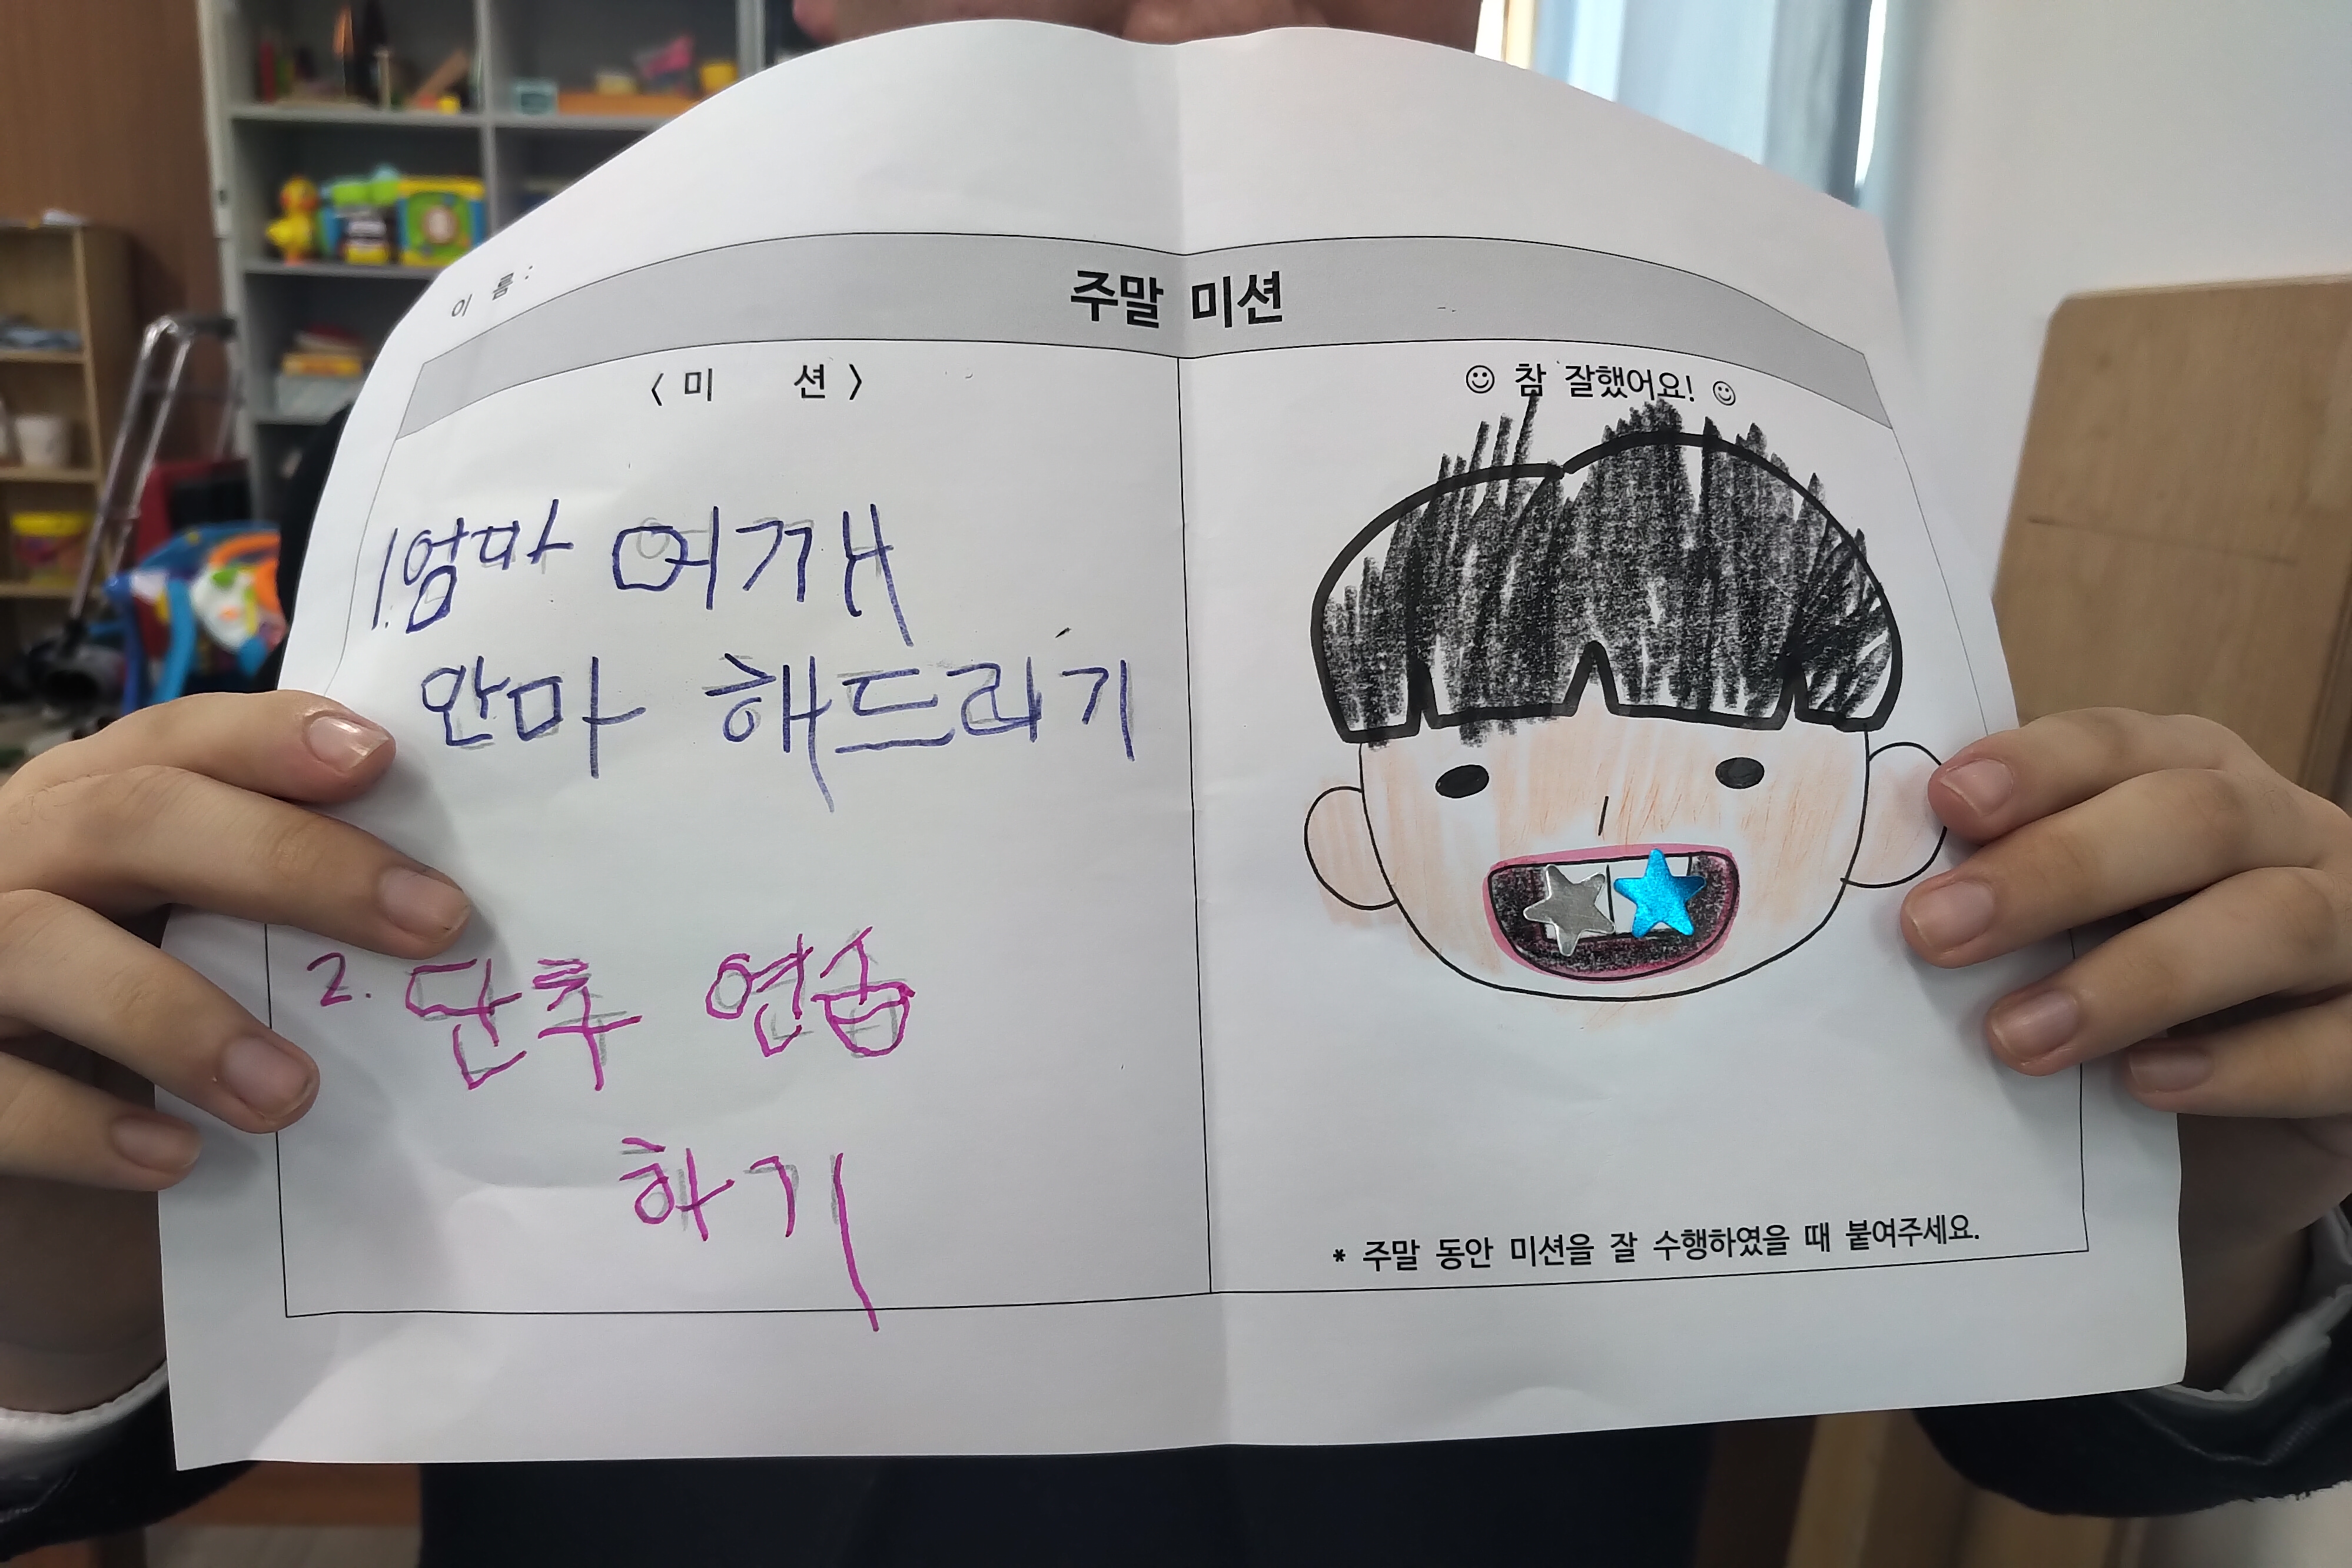 이 름 :
주말 미션
〈 미 션 〉
1. 엄마 어깨
안마 해드리기
2. 단추 연습
하기
☺ 참 잘했어요! ☺
* 주말 동안 미션을 잘 수행하였을 때 붙여주세요.